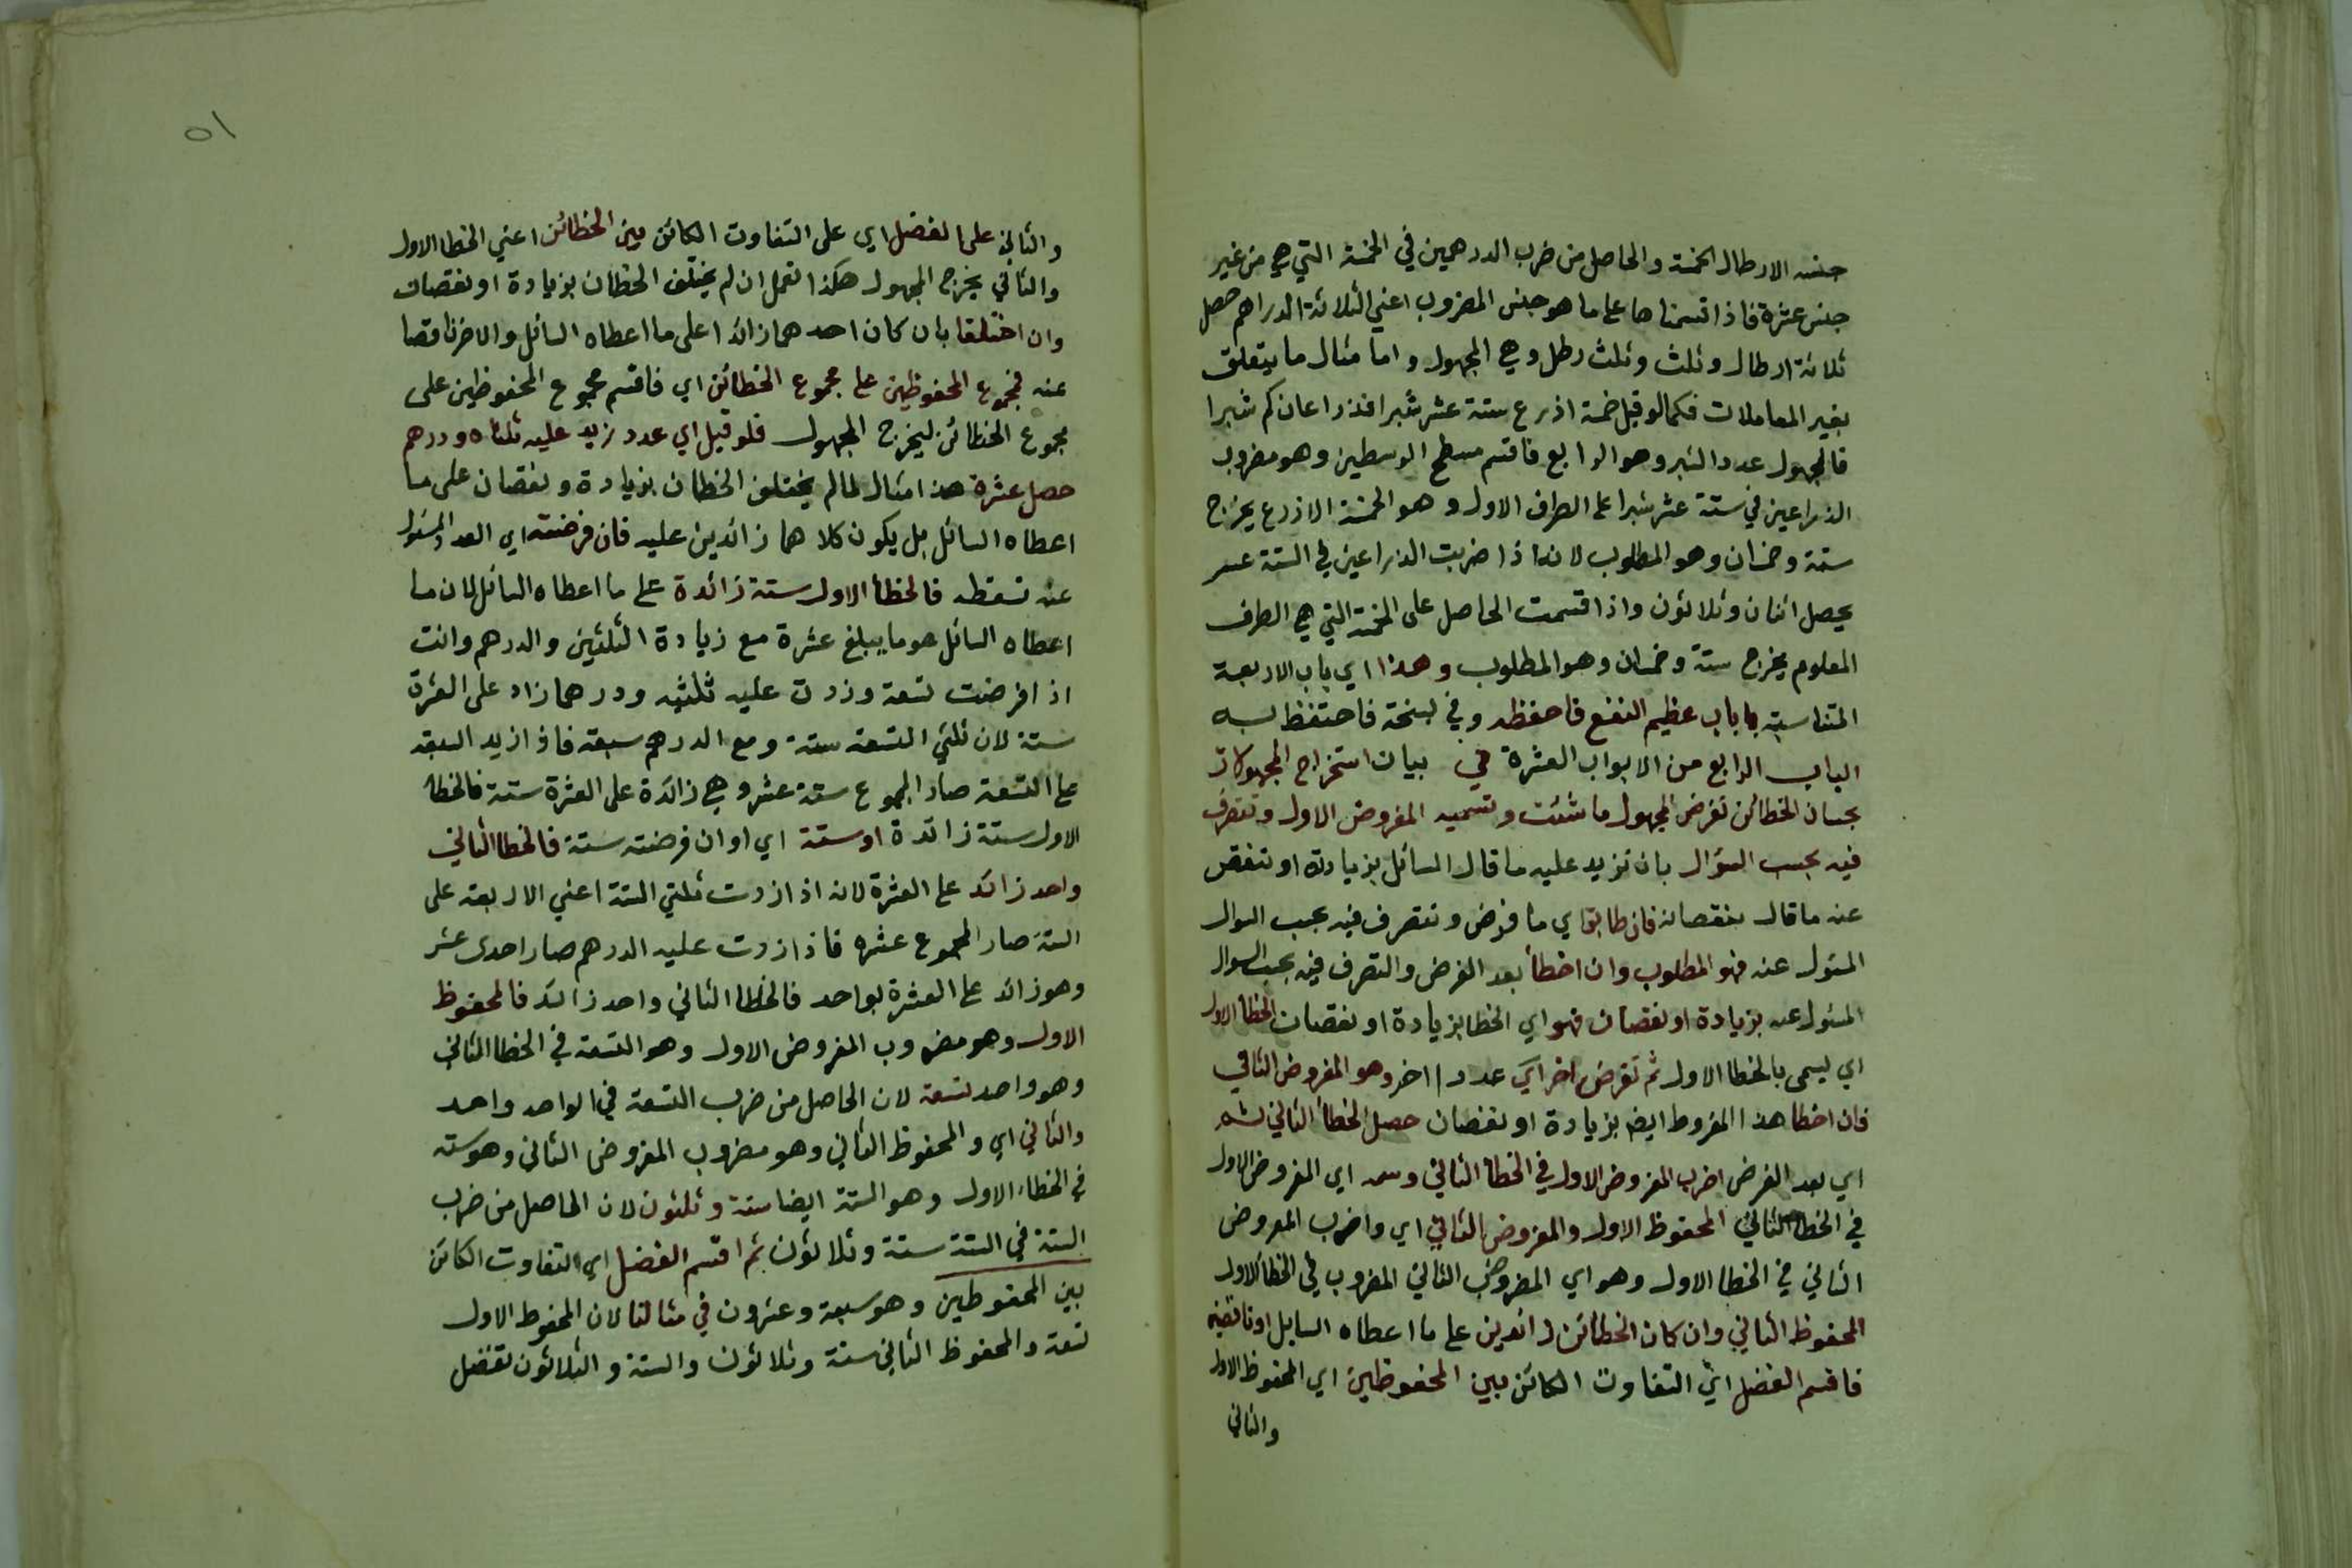 جنسه الارطال الخمسة والحاصل من ضرب الدرهمين في الخمسة التي هي من غير
جنس عشرة فاذا قسمناها على ما هو جنس المضروب اعني الثلاثة الدراهم حصل
ثلاثة ارطال وثلث وثلث رطل وهي المجهول واما مثال ما يتعلق
بغير المعاملات فكما لو قيل خمسة اذرع ستة عشر شبرا فذراعان كم شبرا
فالمجهول عدد الشبر وهو الرابع فاقسم مسطح الوسطين وهو مضروب
الذراعين في ستة عشر شبرا على الطرف الاول وهو الخمسة الاذرع يخرج
ستة وخمسان وهو المطلوب لانه اذا ضربت الذراعين في الستة عشر
يحصل اثنان وثلاثون واذا قسمت الحاصل على الخمسة التي هي الطرف
المعلوم يخرج ستة وخمسان وهو المطلوب وهذا اي باب الاربعة
المتناسبة باباب عظيم النفع فاحفظه وفي نسخة فاحتفظ به
الباب الرابع من الابواب العشرة في بيان استخراج المجهولات
بحساب الخطائن تفرض المجهول ما شئت وتسميه المفروض الاول وتتصرف
فيه بحسب السؤال بان تزيد عليه ما قال السائل بزيادته او تنقص
عنه ما قال بنقصانه فان طابق اي ما فرض وتتصرف فيه بحسب السوال
المسئول عنه فهو المطلوب وان اخطأ بعد الفرض والتصرف فيه بحسب السوال
المسئول عنه بزيادة او نقصان فهو اي الخطا بزيادة او نقصان الخطأ الاول
اي يسمى بالخطا الاول ثم تفرض اخر اي عددا اخر وهو المفروض الثاني
فان اخطا هذا المفروط ايضا بزيادة او نقصان حصل الخطأ الثاني ثم
اي بعد الفرض اضرب المفروض الاول في الخطأ الثاني وسمه اي المفروض الاول
في الخطا الثاني المحفوظ الاول والمفروض الثاني اي واضرب المفروض
الثاني في الخطا الاول وهو اي المفروض الثاني المضروب في الخطا الاول
المحفوظ الثاني وان كان الخطائن زائدين على ما اعطاه السايل او ناقصين
فاقسم الفضل اي التفاوت الكائن بين المحفوظين اي المحفوظ الاول
والثاني
٥١
والثاني على الفضل اي على التفاوت الكائن بين الخطائن اعني الخطا الاول
والثاني يخرج المجهول هكذا تعمل ان لم يختلف الخطان بزيادة او نقصان
وان اختلفا بان كان احدهما زائدا على ما اعطاه السائل والاخر ناقصا
عنه فمجموع المحفوظين على مجموع الخطائن اي فاقسم مجموع المحفوظين على
مجموع الخطائن ليخرج المجهول فلو قيل اي عدد زيد عليه ثلثاه ودرهم
حصل عشرة هذا مثال لما لم يختلف الخطان بزيادة ونقصان على ما
اعطاه السائل بل يكون كلاهما زائدين عليه فان فرضته اي العدد المسئول
عنه تسعة فالخطأ الاول ستة زائدة على ما اعطاه السائل لان ما
اعطاه السائل هو ما يبلغ عشرة مع زيادة الثلثين والدرهم وانت
اذا فرضت تسعة وزدت عليه ثلثيه ودرهما زاد على العشرة
ستة لان ثلثي التسعة ستة ومع الدرهم سبعة فاذا زيد السبعة
على التسعة صار المجموع ستة عشر وهي زائدة على العشرة ستة فالخطا
الاول ستة زائدة او ستة اي او ان فرضته ستة فالخطا الثاني
واحد زائد على العشرة لانه اذا زدت ثلثي الستة اعني الاربعة على
الستة صار المجموع عشره فاذا زدت عليه الدرهم صار احدى عشر
وهو زائد على العشرة بواحد فالخطا الثاني واحد زائد فالمحفوظ
الاول وهو مضروب المفروض الاول وهو التسعة في الخطا الثاني
وهو واحد تسعة لان الحاصل من ضرب التسعة في الواحد واحد
والثاني اي والمحفوظ الثاني وهو مضروب المفروض الثاني وهو ستة
في الخطاء الاول وهو الستة ايضا ستة وثلثون لان الحاصل من ضرب
الستة في الستة ستة وثلاثون ثم اقسم الفضل اي التفاوت الكائن
بين المحفوطين وهو سبعة وعشرون في مثالنا لان المحفوظ الاول
تسعة والمحفوظ الثاني ستة وثلاثون والستة والثلاثون تفضل